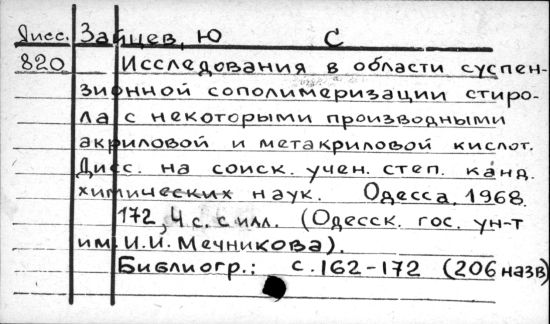 Дисс. Зайцев, Ю С
820 Исследования в области суспен-
зионной сополимеризации стиро-
ла с некоторыми производными
акриловой и метакриловой кислот.
Дисс. на соиск. учен. степ. канд.
химических наук. Одесса, 1968.
172, 4 с. с илл. (Одесск. гос. ун-т
им. И.И. Мечникова).
Библиогр.: с. 162-172 (206 назв)